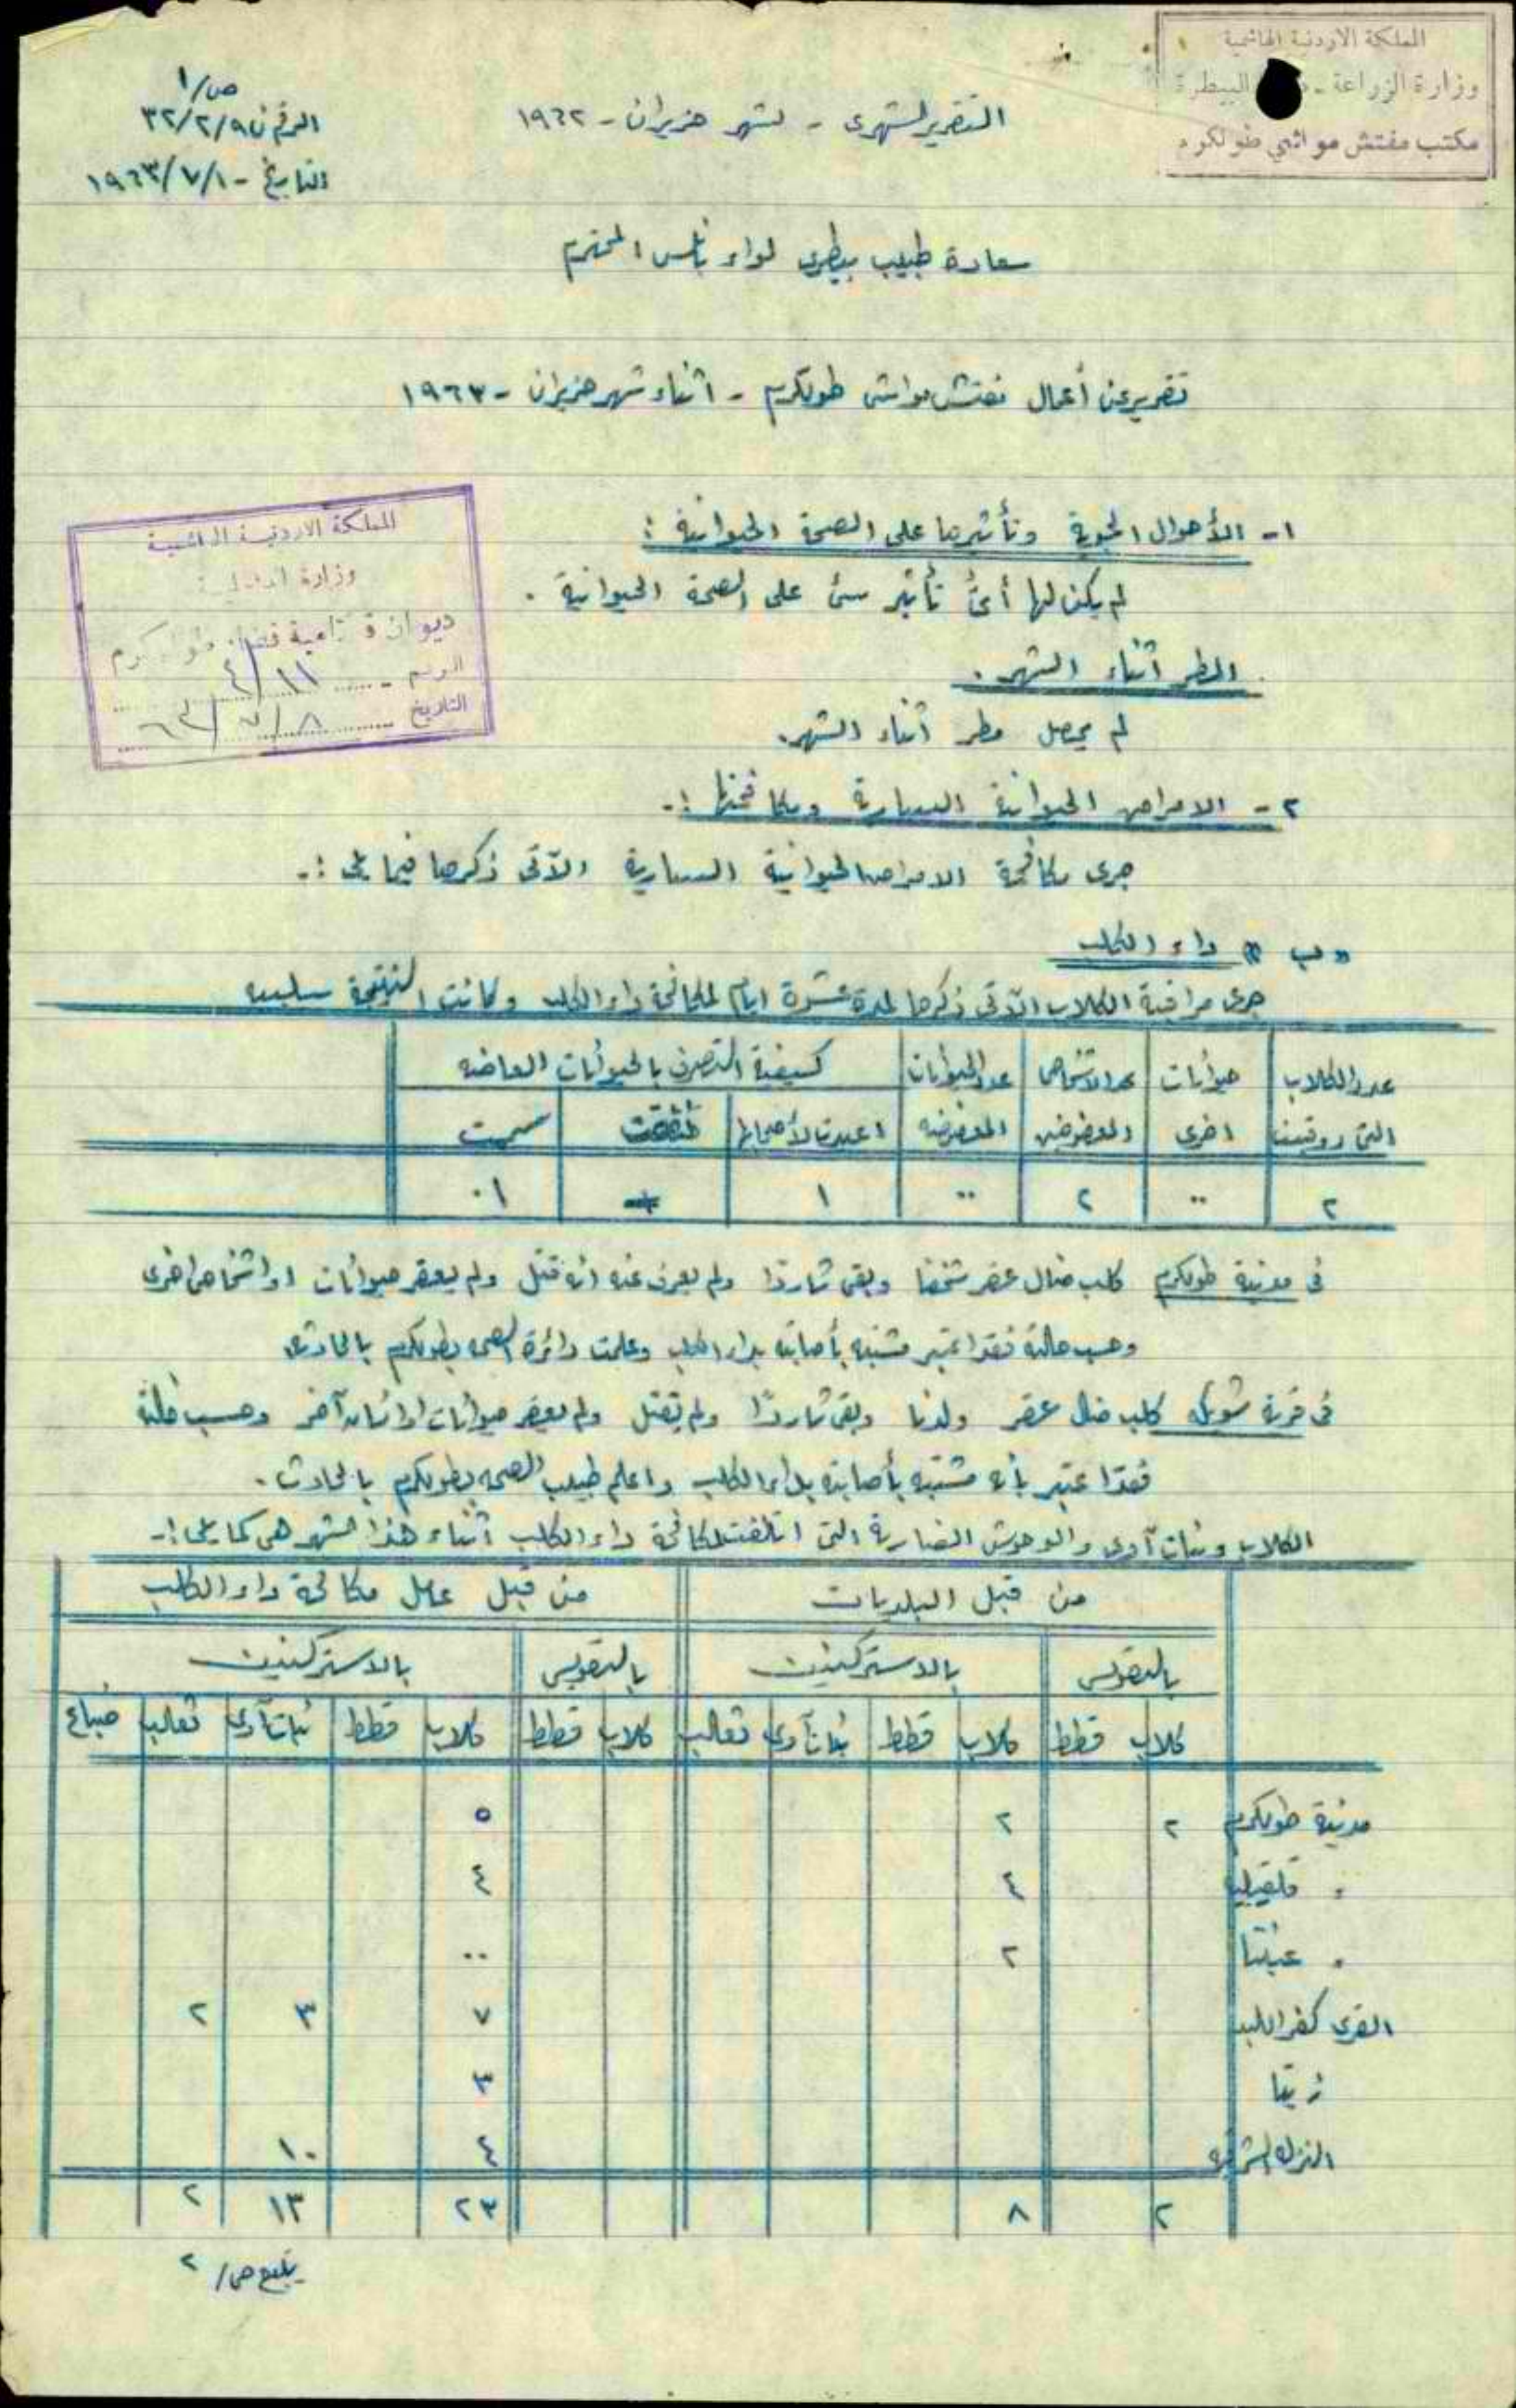 المملكة الاردنية الهاشمية
وزارة الزراعة - البيطرة
مكتب مفتش مواشي طولكرم
التقرير الشهري - لشهر حزيران - ١٩٦٣
ص/١
الرقم ن ٣٢/٢/٩
التاريخ - ١٩٦٣/٧/١
سعادة طبيب بيطري لواء نابلس المحترم
تقرير عن أعمال مفتش مواشي طولكرم - اثناء شهر حزيران - ١٩٦٣
المملكة الاردنية الهاشمية
وزارة الداخلية
ديوان قائمقامية قضاء طولكرم
الرقم ١١/٤
التاريخ ٨/٧/٦٣
١- الأحوال الجوية وتأثيرها على الصحة الحيوانية :
لم يكن لها أيّ تأثير سئ على الصحة الحيوانية .
المطر اثناء الشهر .
لم يحصل مطر اثناء الشهر.
٢- الامراض الحيوانية السارية ومكافحتها :-
جرى مكافحة الامراض الحيوانية السارية الآتي ذكرها فيما يلي :-
« ب » داء الكلب
جرى مراقبة الكلاب الآتي ذكرها لمدة عشرة ايام لمكافحة داء الكلب وكانت النتيجة سلبيه
عدد الكلاب التي روقبت | حيوانات اخرى | عدد الاشخاص المعضوضين | عدد الحيوانات المعضوضه | كيفية التصرف بالحيوانات العاضه
اعيدت لأصحابها | نفقت | سممت
٢ | ٠٠ | ٢ | ٠٠ | ١ | + | ٠١
في مدينة طولكرم كلب ضال عقر شخصا وبقي شاردا ولم يعرف عنه انه قتل ولم يعقر حيوانات او اشخاص اخرى
وحسب حالته فقد اعتبر مشتبه بأصابته بداء الكلب وعلمت دائرة الصحه بطولكرم بالحادث
في قرية شويكه كلب ضال عقر ولدا وبقي شاردا ولم يقتل ولم يعقر حيوانات او انسان آخر وحسب حالته
فقد اعتبر بأنه مشتبه بأصابته بداء الكلب واعلم طبيب الصحه بطولكرم بالحادث .
الكلاب وبنات آوى والوحوش الضارية التي اتلفت لمكافحة داء الكلب اثناء هذا الشهر هي كما يلي :-
من قبل البلديات | من قبل عامل مكافحة داء الكلب
بالتقويس | بالاستركنين | بالتقويس | بالاستركنين
كلاب | قطط | كلاب | قطط | بنات آوى | ثعالب | كلاب | قطط | كلاب | قطط | بنات آوى | ثعالب | ضباع
مدينة طولكرم ٢ ٢ ٥
" قلقيليا ٤ ٤
" عنبتا ٢ ٠٠
القرى كفر اللبد ٧ ٣ ٢
زيتا ٣
النزله الشرقيه ٤ ١٠
٢ ٨ ٢٣ ١٣ ٢
يتبع ص/ ٢